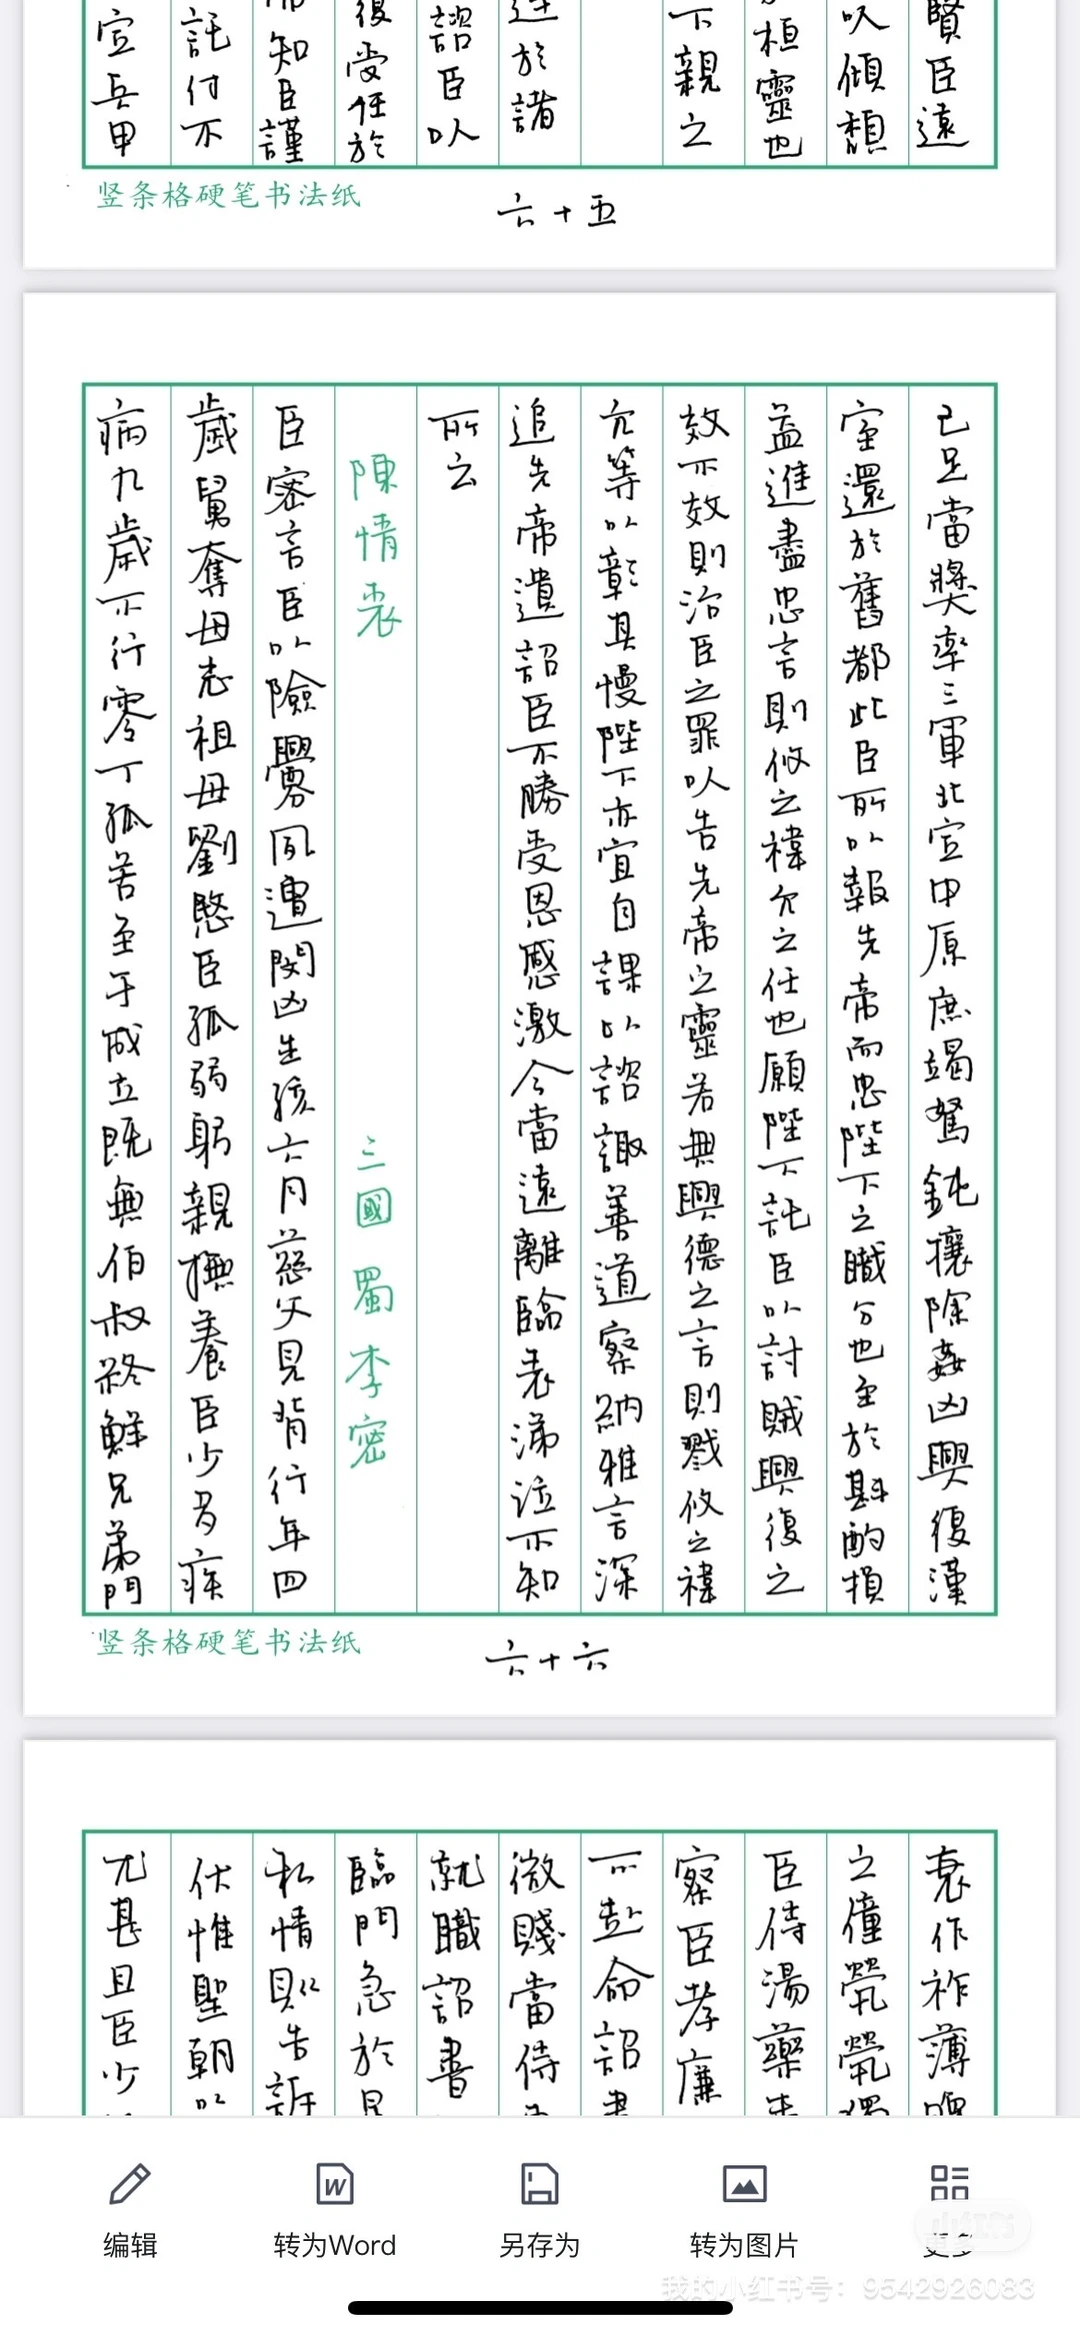 賢臣遠
以傾頹
桓靈也
下親之
達於諸
諮臣以
受任於
帝知臣謹
託付不
定兵甲
竖条格硬笔书法纸
六十五
已足當獎率三軍北定中原庶竭駑鈍攘除姦凶興復漢
室還於舊都此臣所以報先帝而忠陛下之職分也至於斟酌損
益進盡忠言則攸之禕允之任也願陛下託臣以討賊興復之
效不效則治臣之罪以告先帝之靈若無興德之言則戮攸之禕
允等以彰其慢陛下亦宜自課以諮諏善道察納雅言深
追先帝遺詔臣不勝受恩感激今當遠離臨表涕泣不知
所云
陳情表 三國 蜀 李密
臣密言臣以險釁夙遭閔凶生孩六月慈父見背行年四
歲舅奪母志祖母劉愍臣孤弱躬親撫養臣少多疾
病九歲不行零丁孤苦至于成立既無伯叔終鮮兄弟門
竖条格硬笔书法纸
六十六
衰作祚薄晚
之僮煢煢獨
臣侍湯藥
察臣孝廉
不赴命詔書
微賤當侍
就職詔書
臨門急於
私情則告訴
伏惟聖朝以
尤甚且臣少
编辑
转为Word
另存为
转为图片
更多
小红书
我的小红书号：9542926083